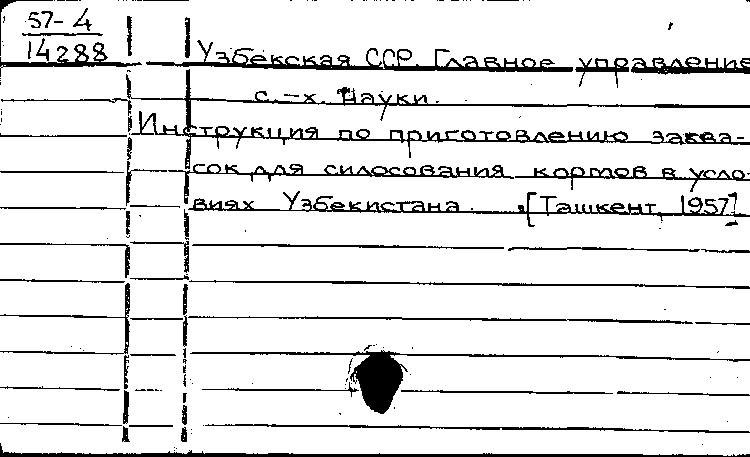 57-4
14288
Узбекская ССР. Главное управление
с.-х. науки.
Инструкция по приготовлению заква-
сок для силосования кормов в усло-
виях Узбекистана. [Ташкент, 1957]